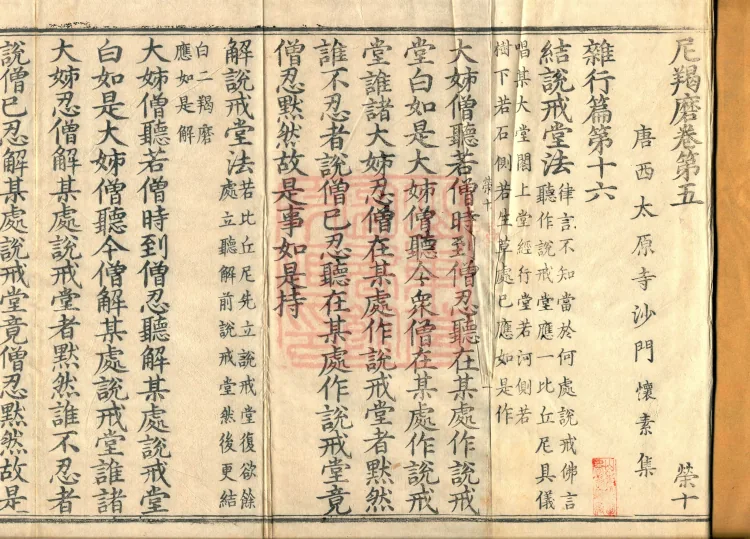 尼羯磨卷第五
榮十
唐西太原寺沙門懷素集
雜行篇第十六
結說戒堂法
律言不知當於何處說戒佛言
聽作說戒堂應一比丘尼具儀
唱某大堂閣上堂經行堂若河側若
樹下若石側若生草處已應如是作
榮十
一
大姊僧聽若僧時到僧忍聽在某處作說戒
堂白如是大姊僧聽今眾僧在某處作說戒
堂誰諸大姊忍僧在某處作說戒堂者默然
誰不忍者說僧已忍聽在某處作說戒堂竟
僧忍默然故是事如是持
解說戒堂法
若比丘尼先立說戒堂復欲餘
處立聽解前說戒堂然後更結
白二羯磨
應如是解
大姊僧聽若僧時到僧忍聽解某處說戒堂
白如是大姊僧聽今僧解某處說戒堂誰諸
大姊忍僧解某處說戒堂者默然誰不忍者
說僧已忍解某處說戒堂竟僧忍默然故是